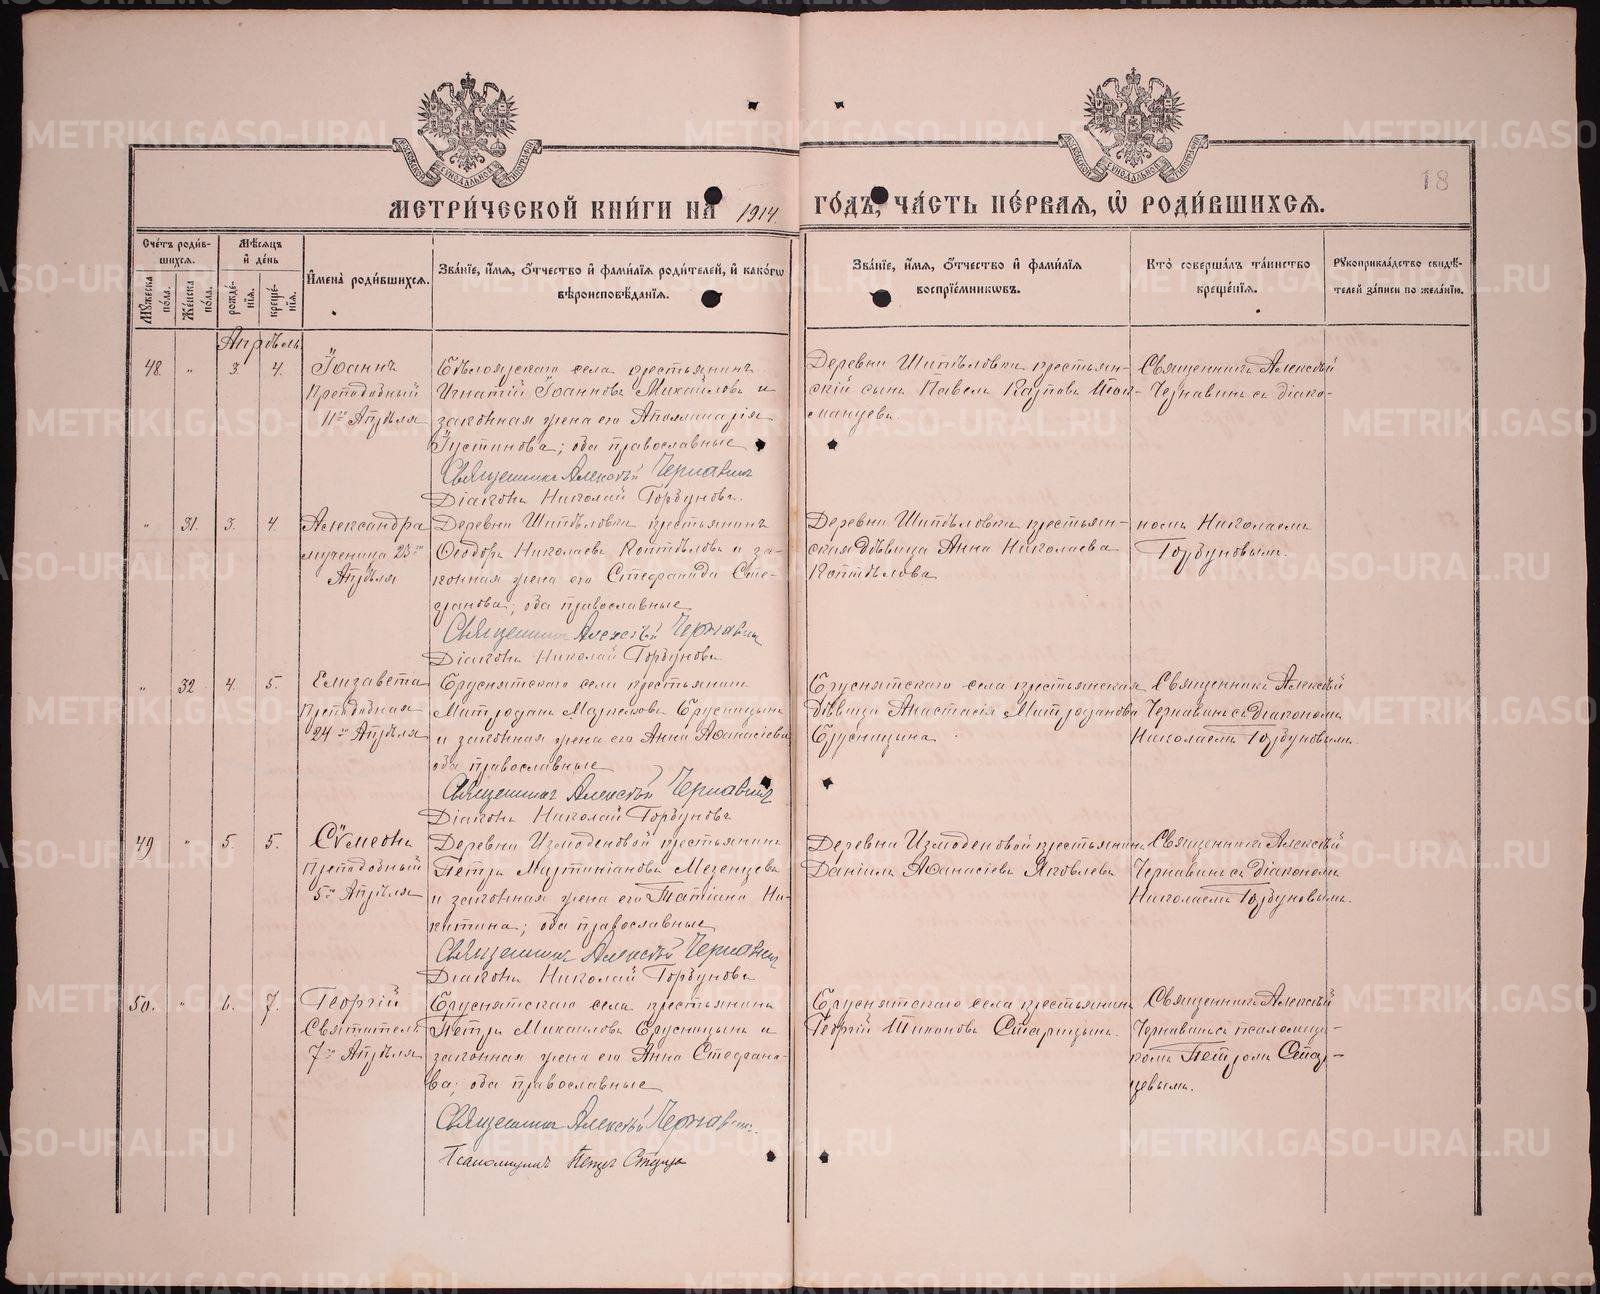 МЕТРИ́ЧЕСКОЙ КНИ́ГИ НА 1914 ГО́ДЪ, ЧА́СТЬ ПЕ́РВАЯ, Ѡ҆ РОДИ́ВШИХСЯ.
18
Сче́тъ роди́вшихся.
Мꙋ́жеска по́ла.
Же́нска по́ла.
Мѣ́сяцъ и҆ де́нь
рожде́нїя.
креще́нїя.
И҆мена̀ роди́вшихся.
Зва́нїе, и҆́мя, ѻ҆́тчество и҆ фами́лїя роди́телей, и҆ како́гѡ вѣроисповѣ́данїя.
Зва́нїе, и҆́мя, ѻ҆́тчество и҆ фами́лїя воспрїе́мникѡвъ.
Кто̀ соверша́лъ та́инство креще́нїя.
Рꙋкоприкла́дство свидѣ́телей за́писи по жела́нїю.
Апрѣль
48. " 3. 4.
Іоаннъ
Преподобный
11го Апрѣля
села крестьянинъ
Игнатій Іоанновъ Михайловъ и
законная жена его Аполлинарія
Іустинова; оба православные
Священникъ Алексѣй Чернавинъ
Діаконъ Николай Горбуновъ.
Деревни Шипѣловки крестьян-
скій сынъ Павелъ Карповъ
Священникъ Алексѣй
Чернавинъ съ діако-
" 31. 3. 4.
Александра
мученица 23го
Апрѣля
Деревни Шипѣловки крестьянинъ
Ѳеодоръ Николаевъ Коптѣловъ и за-
конная жена его Стефанида Сте-
фанова; оба православные
Священникъ Алексѣй Чернавинъ
Діаконъ Николай Горбуновъ
Деревни Шипѣловки крестьян-
ская дѣвица Анна Николаева
Коптѣлова
номъ Николаемъ
Горбуновымъ.
" 32 4. 5.
Елизавета
Преподобная
24го Апрѣля
Бруснятскаго села крестьянинъ
Митрофанъ Маркеловъ Брусницынъ
и законная жена его Анна Аѳанасіева
оба православные
Священникъ Алексѣй Чернавинъ
Діаконъ Николай Горбуновъ
Бруснятскаго села крестьянская
дѣвица Анастасія Митрофанова
Брусницына
Священникъ Алексѣй
Чернавинъ съ діакономъ
Николаемъ Горбуновымъ.
49 " 5. 5.
Сѵмеонъ
Преподобный
5го Апрѣля
Деревни Измоденовой крестьянинъ
Петръ Мартиніановъ Мезенцевъ
и законная жена его Татіана Ни-
китина; оба православные
Священникъ Алексѣй Чернавинъ
Діаконъ Николай Горбуновъ
Деревни Измоденовой крестьянинъ
Даніилъ Аѳанасіевъ Яковлевъ
Священникъ Алексѣй
Чернавинъ съ діакономъ
Николаемъ Горбуновымъ.
50. " 6. 7.
Георгій
Святитель
7го Апрѣля
Бруснятскаго села крестьянинъ
Петръ Михаиловъ Брусницынъ и
законная жена его Анна Стефано-
ва; оба православные
Священникъ Алексѣй Чернавинъ.
Псаломщикъ Петръ
Бруснятскаго села крестьянинъ
Георгій Тихоновъ Старицынъ.
Священникъ Алексѣй
Чернавинъ съ псаломщи-
комъ Петромъ
METRIKI.GASO-URAL.RU